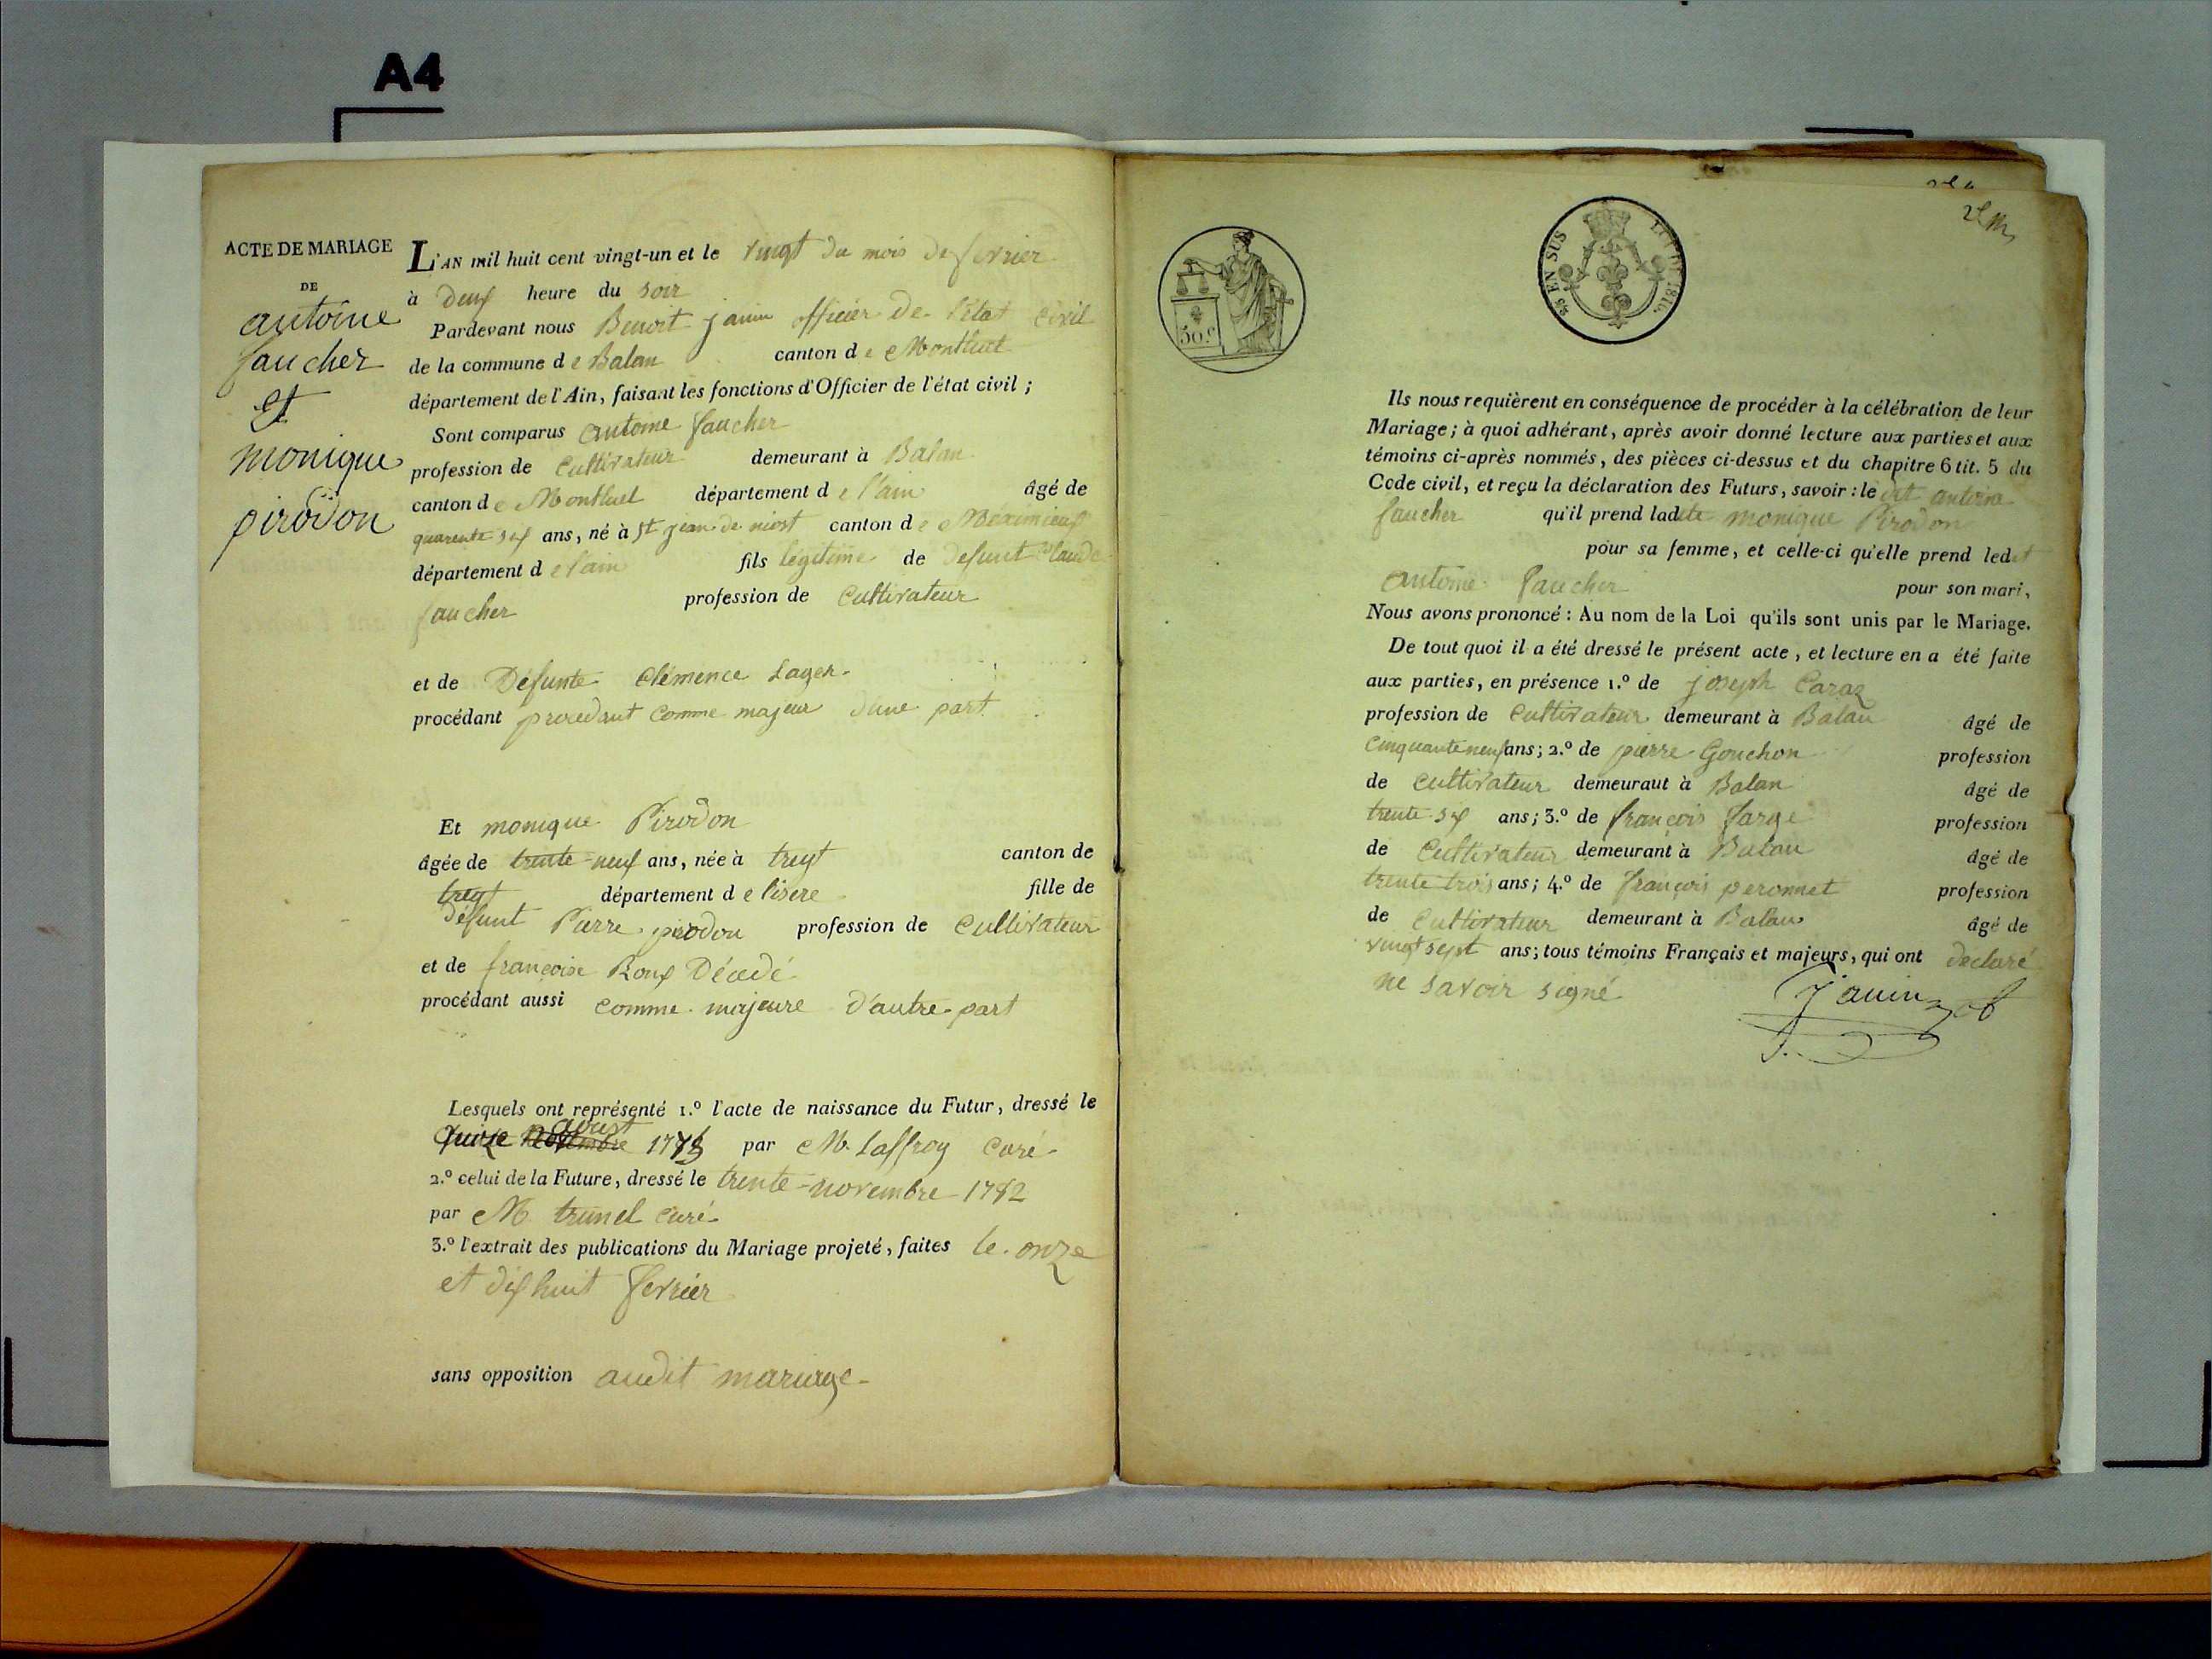 A4
ACTE DE MARIAGE
DE
antoine
faucher
et
monique
pirodon
L'AN mil huit cent vingt-un et le vingt du mois de fevrier
à deux heure du soir
Pardevant nous Benoit janin officier de l'état civil
de la commune de Balan canton de Montluel
département de l'Ain, faisant les fonctions d'Officier de l'état civil ;
Sont comparus antoine faucher
profession de cultivateur demeurant à Balan
canton de Montluel département de l'ain âgé de
quarente six ans, né à St jean de niost canton de Meximieux
département de l'ain fils légitime de defunt Claude
faucher profession de cultivateur
et de Défunte Clémence Lager
procédant procedant comme majeur d'une part
Et monique Pirodon
âgée de trente-neuf ans, née à trept canton de
trept département de lisere fille de
défunt Pierre pirodon profession de cultivateur
et de françoise Roux Décedé
procédant aussi comme majeure d'autre part
Lesquels ont représenté 1.º l'acte de naissance du Futur, dressé le
aoust
par M. Laffroy curé
2.º celui de la Future, dressé le trente novembre 1782
par M. trunel curé
3.º l'extrait des publications du Mariage projeté, faites le onze
et dix huit fevrier
sans opposition audit mariage
50.c
EN SUS
LOI DE 1816.
Ils nous requièrent en conséquence de procéder à la célébration de leur
Mariage ; à quoi adhérant, après avoir donné lecture aux parties et aux
témoins ci-après nommés, des pièces ci-dessus et du chapitre 6 tit. 5 du
Code civil, et reçu la déclaration des Futurs, savoir : le dit antoine
faucher qu'il prend ladite monique Pirodon
pour sa femme, et celle-ci qu'elle prend ledit
antoine faucher pour son mari,
Nous avons prononcé : Au nom de la Loi qu'ils sont unis par le Mariage.
De tout quoi il a été dressé le présent acte, et lecture en a été faite
aux parties, en présence 1.º de joseph Caraz
profession de cultivateur demeurant à Balan âgé de
cinquante neuf ans ; 2.º de pierre Gouchon profession
de cultivateur demeuraut à Balan âgé de
trente six ans ; 3.º de françois farge profession
de cultivateur demeurant à Balan âgé de
trente trois ans ; 4.º de françois peronnet profession
de cultivateur demeurant à Balan âgé de
vingt sept ans ; tous témoins Français et majeurs, qui ont declaré
ne savoir signé
Janin